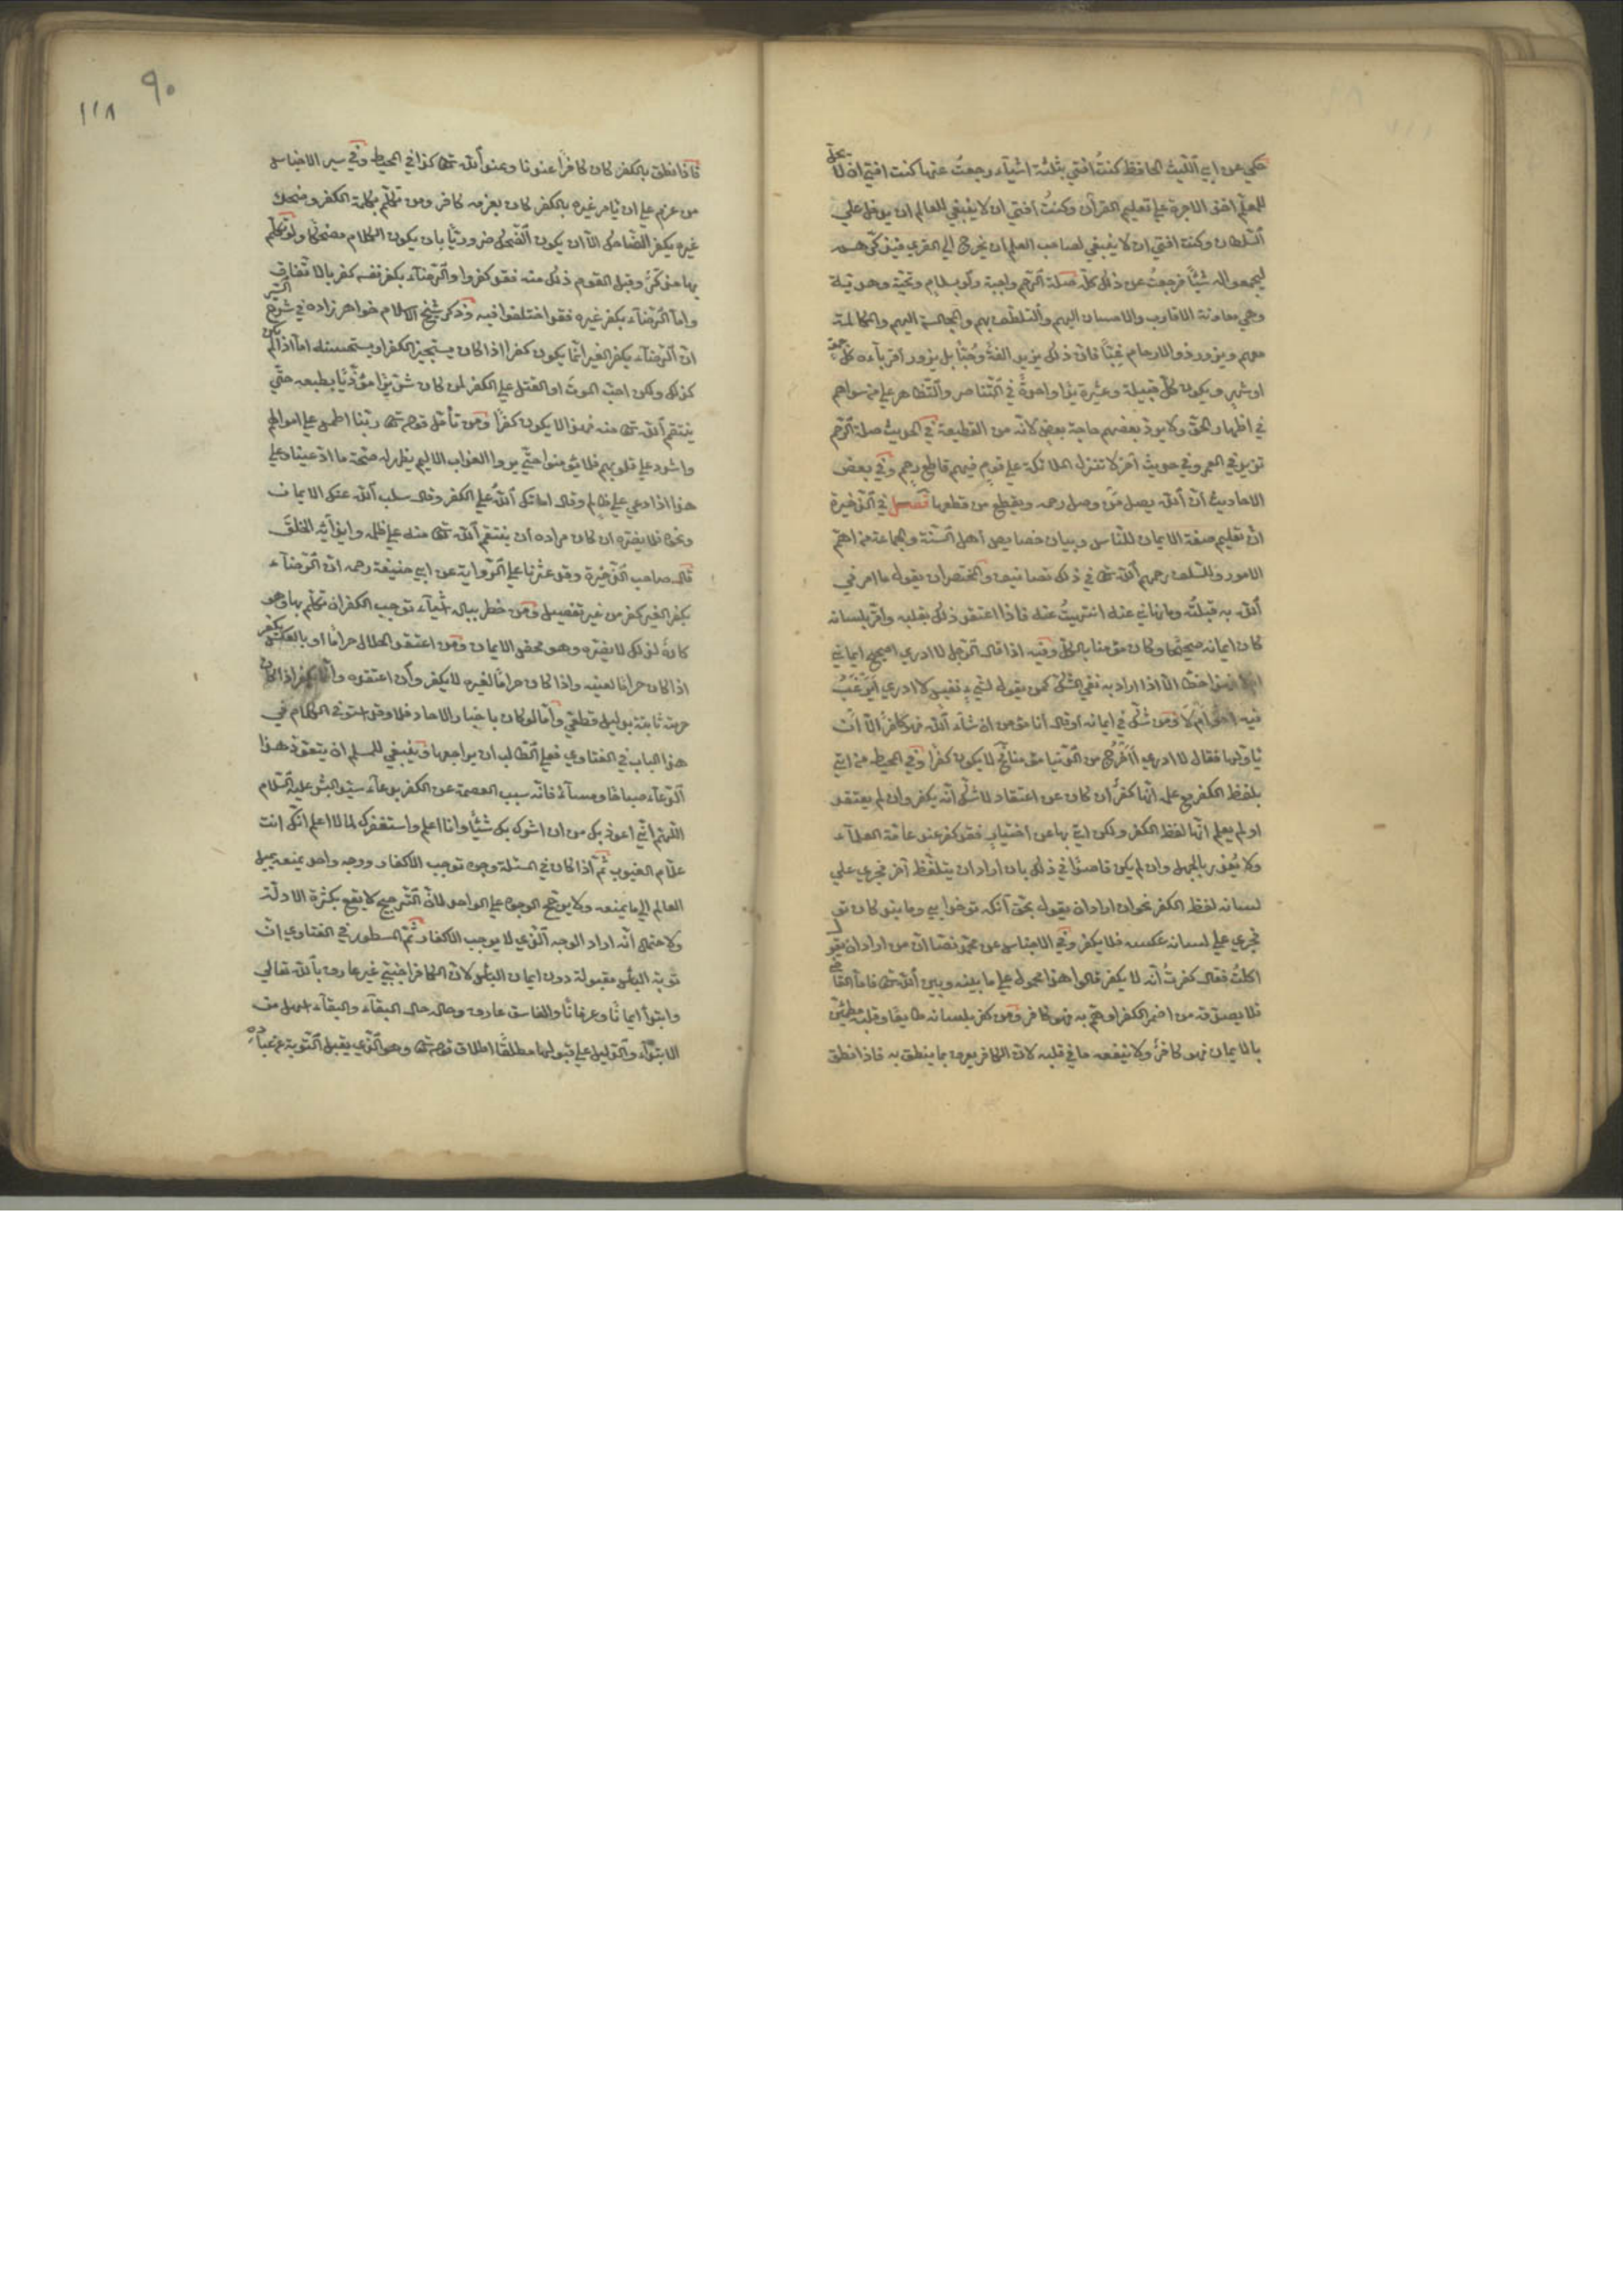 حكي عن ابي الليث الحافظ كنتُ افتي بثلثة اشياء رجعتُ عنها كنت افتي ان لا يحلّ
للمعلّم اخذ الاجرة علي تعليم القرآن وكنتُ افتي ان لا ينبغي للعالم ان يدخل علي
السّلطان وكنت افتي ان لا ينبغي لصاحب العلم ان يخرج الي القري فيذكّرهم
ليجمعوا له شيئًا فرجعتُ عن ذلك كلّه صلة الرّحم واجبة ولو بسلام وتحيّة وهديّة
وهي معاونة الاقارب والاحسان اليهم والتلطّف بهم والمجالسة اليهم والمكالمة
معهم ويزور ذوالارحام غِبًّا فانّ ذلك يزيد الفةً وحُبًّا بل يزور اقرباءه كلّ جمعة
او شهر ويكون كلّ قبيلة وعشيرة يدًا واحدةً في التّناصر والتّظاهر علي من سواهم
في اظهار الحقّ ولا يردّ بعضهم حاجة بعض لانّه من القطيعة في الحديث صلة الرّحم
تزيد في العمر وفي حديث آخر لا تنزل الملائكة علي قوم فيهم قاطع رحم وفي بعض
الاحاديث انّ الله يصل من وصل رحمه ويقطع من قطعها فصل في الذّخيرة
انّ تعليم صفة الايمان للنّاس وبيان خصايص اهل السّنّة والجماعة من اهمّ
الامور وللسّلف رحمهم الله تع في ذلك تصانيف والمختصر ان يقول ما امرني
الله به قبلتُه وما نهاني عنه انتهيتُ عنه فاذا اعتقد ذلك بقلبه واقرّ بلسانه
كان ايمانه صحيحًا وكان مؤمنا بالكلّ وفيه اذا قال الرّجل لا ادري اصحيح ايماني
ام لا فهذا خطأ الّا اذا اراد به نفي الشّكّ كمن يقول لشيءٍ نفيس لا ادري أيَرغَبُ
فيه احدٌ ام لا ومن شكّ في ايمانه او قال انا مؤمن ان شاء الله فهو كافر الّا ان
ياوّلها فقال لا ادري أأخرُج من الدّنيا مؤمنا لا يكون كفرًا وفي المحيط من اتي
بلفظ الكفر مع علمه انّها كفرٌ ان كان عن اعتقاد لا شكّ انّه يكفر وان لم يعتقد
او لم يعلم انّها لفظ الكفر ولكن اتي بها عن اختيارٍ فقد كفر عند عامّة العلماء
ولا يُعذر بالجهل وان لم يكن قاصدًا في ذلك بان اراد ان يتلفّظ آخر فجري علي
لسانه لفظ الكفر نحو ان اراد ان يقول بحقّ آنكه تو خدايي وما بندكان تو
فجري علي لسانه عكسه فلا يكفر وفي الاجناس عن محمّد نصًّا انّ من اراد ان يقول
اكلتُ فقال كفرتُ انّه لا يكفر قالوا هذا محمول علي ما بينه وبين الله تع فامّا القاضي
فلا يصدّقه من اضمر الكفر او همّ به فهو كافر ومن كفر بلسانه طايعًا وقلبه مطمئنّ
بالايمان فهو كافرٌ ولا ينفعه ما في قلبه لانّ الكافر يعرف بما ينطق به فاذا نطق
٩٠
١١٨
فاذا نطق بالكفر كان كافرًا عندنا وعند الله تع كذا في المحيط وفي سير الاجناس
من عزم علي ان يامر غيره بالكفر كان بعزمه كافر ومن تكلّم بكلمة الكفر وضحك
غيره يكفر الضّاحك الّا ان يكون الضّحك ضروريًّا بان يكون الكلام مضحكًا ولو تكلّم
بها مذكّرٌ وقبل القوم ذلك منه فقد كفروا والرّضاء بكفر نفسه كفر بالاتّفاق
وامّا الرّضاء بكفر غيره فقد اختلفوا فيه وذكر شيخ الاسلام خواهر زاده في شرح السّير
انّ الرّضاء بكفر الغير انّما يكون كفرًا اذا كان يستجيز الكفر او يستحسنه امّا اذا لم يكن
كذلك ولكن احبّ الموت او القتل علي الكفر لمن كان شرّيرًا مؤذيًا بطبعه حتّي
ينتقم الله تع منه فهذا لا يكون كفرًا ومن تأمّل قوله تع ربّنا اطمس علي اموالهم
واشدد علي قلوبهم فلا يؤمنوا حتّي يروا العذاب الاليم يظهر له صحّة ما ادّعينا وعلي
هذا اذا دعي علي ظالم وقال اماتك الله علي الكفر وقال سلب الله عنك الايمان
ونحوه فلا يضرّه ان كان مراده ان ينتقم الله تع منه علي ظلمه وايذائه الخلقَ
قال صاحب الذّخيرة وقد عثرنا علي الرّواية عن ابي حنيفة رحمه انّ الرّضاء
بكفر الغير كفر من غير تفصيل ومن خطر بباله اشياء توجب الكفر ان تكلّم بها وهو
كارهٌ لذلك لا يضرّه وهو محض الايمان ومن اعتقد الحلال حرامًا او بالعكس يكفر
اذا كان حرامًا لعينه واذا كان حرامًا لغيره لا يكفر وان اعتقده وانّما يكفر اذا كان
حرمته ثابتة بدليل قطعيّ وامّا لو كان باخبار الاحاد فلا وقد استوفي الكلام في
هذا الباب في الفتاوي فعلي الطّالب ان يراجعها وينبغي للمسلم ان يتعوّذ هذا
الدّعاء صباحًا ومساءً فانّه سبب العصمة عن الكفر بدعاء سيّد البشر عليه السّلام
اللّهمّ انّي اعوذ بك من ان اشرك بك شيئًا وانا اعلم واستغفرك لما لا اعلم انّك انت
علّام الغيوب ثمّ اذا كان في المسئلة وجوه توجب الاكفار ووجه واحد يمنعه يميل
العالم الي ما يمنعه ولا يرجّح الوجوه علي الواحد لانّ التّرجيح لا يقع بكثرة الادلّة
ولاحتمال انّه اراد الوجه الّذي لا يوجب الاكفار ثمّ المسطور في الفتاوي انّ
توبة اليأس مقبولة دون ايمان اليأس لانّ الكافر اجنبيّ غير عارف بالله تعالي
وابتدأ ايمانًا وعرفانًا والفاسق عارف وحاله حال البقاء والبقاء اسهل من
الابتداء والدّليل علي قبولها مطلقًا اطلاق قوله تع وهو الّذي يقبل التّوبة عن عباده